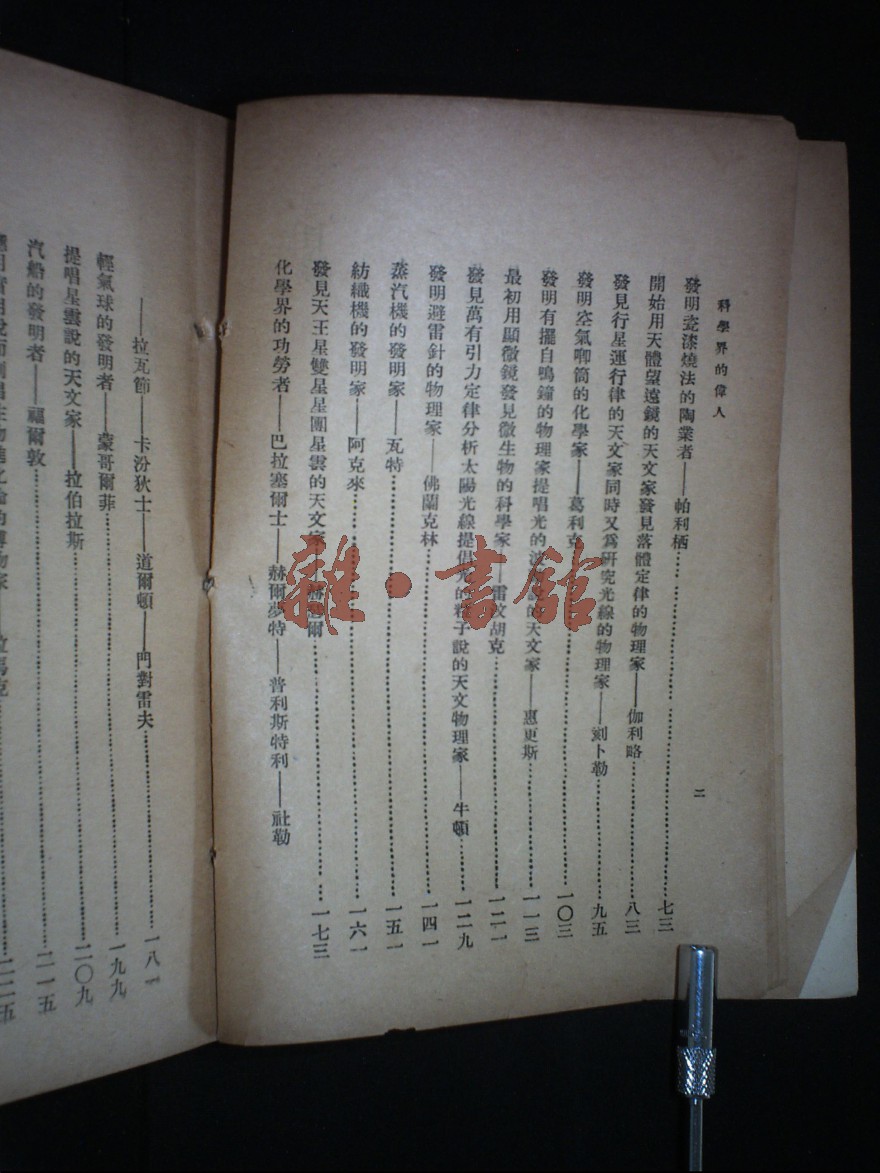 科學界的偉人
二
發明瓷漆燒法的陶業者——帕利栖……七三
開始用天體望遠鏡的天文家發見落體定律的物理家——伽利略……八三
發見行星運行律的天文家同時又爲研究光線的物理家——刻卜勒……九五
發明空氣唧筒的化學家——葛利克……一〇三
發明有擺自鳴鐘的物理家提唱光的波動說的天文家——惠更斯……一一三
最初用顯微鏡發見微生物的科學家——雷文胡克……一二一
發見萬有引力定律分析太陽光線提倡光的粒子說的天文物理家——牛頓……一二九
發明避雷針的物理家——佛蘭克林……一四一
蒸汽機的發明家——瓦特……一五一
紡織機的發明家——阿克來……一六一
發見天王星雙星星團星雲的天文家——赫瑟爾……一七三
化學界的功勞者——巴拉塞爾士——赫爾夢特——普利斯特利——社勒
——拉瓦節——卡汾狄士——道爾頓——門對雷夫……一八一
輕氣球的發明者——蒙哥爾菲……一九九
提唱星雲說的天文家——拉伯拉斯……二〇九
汽船的發明者——福爾敦……二一五
拉馬克……二二五
雜·書館